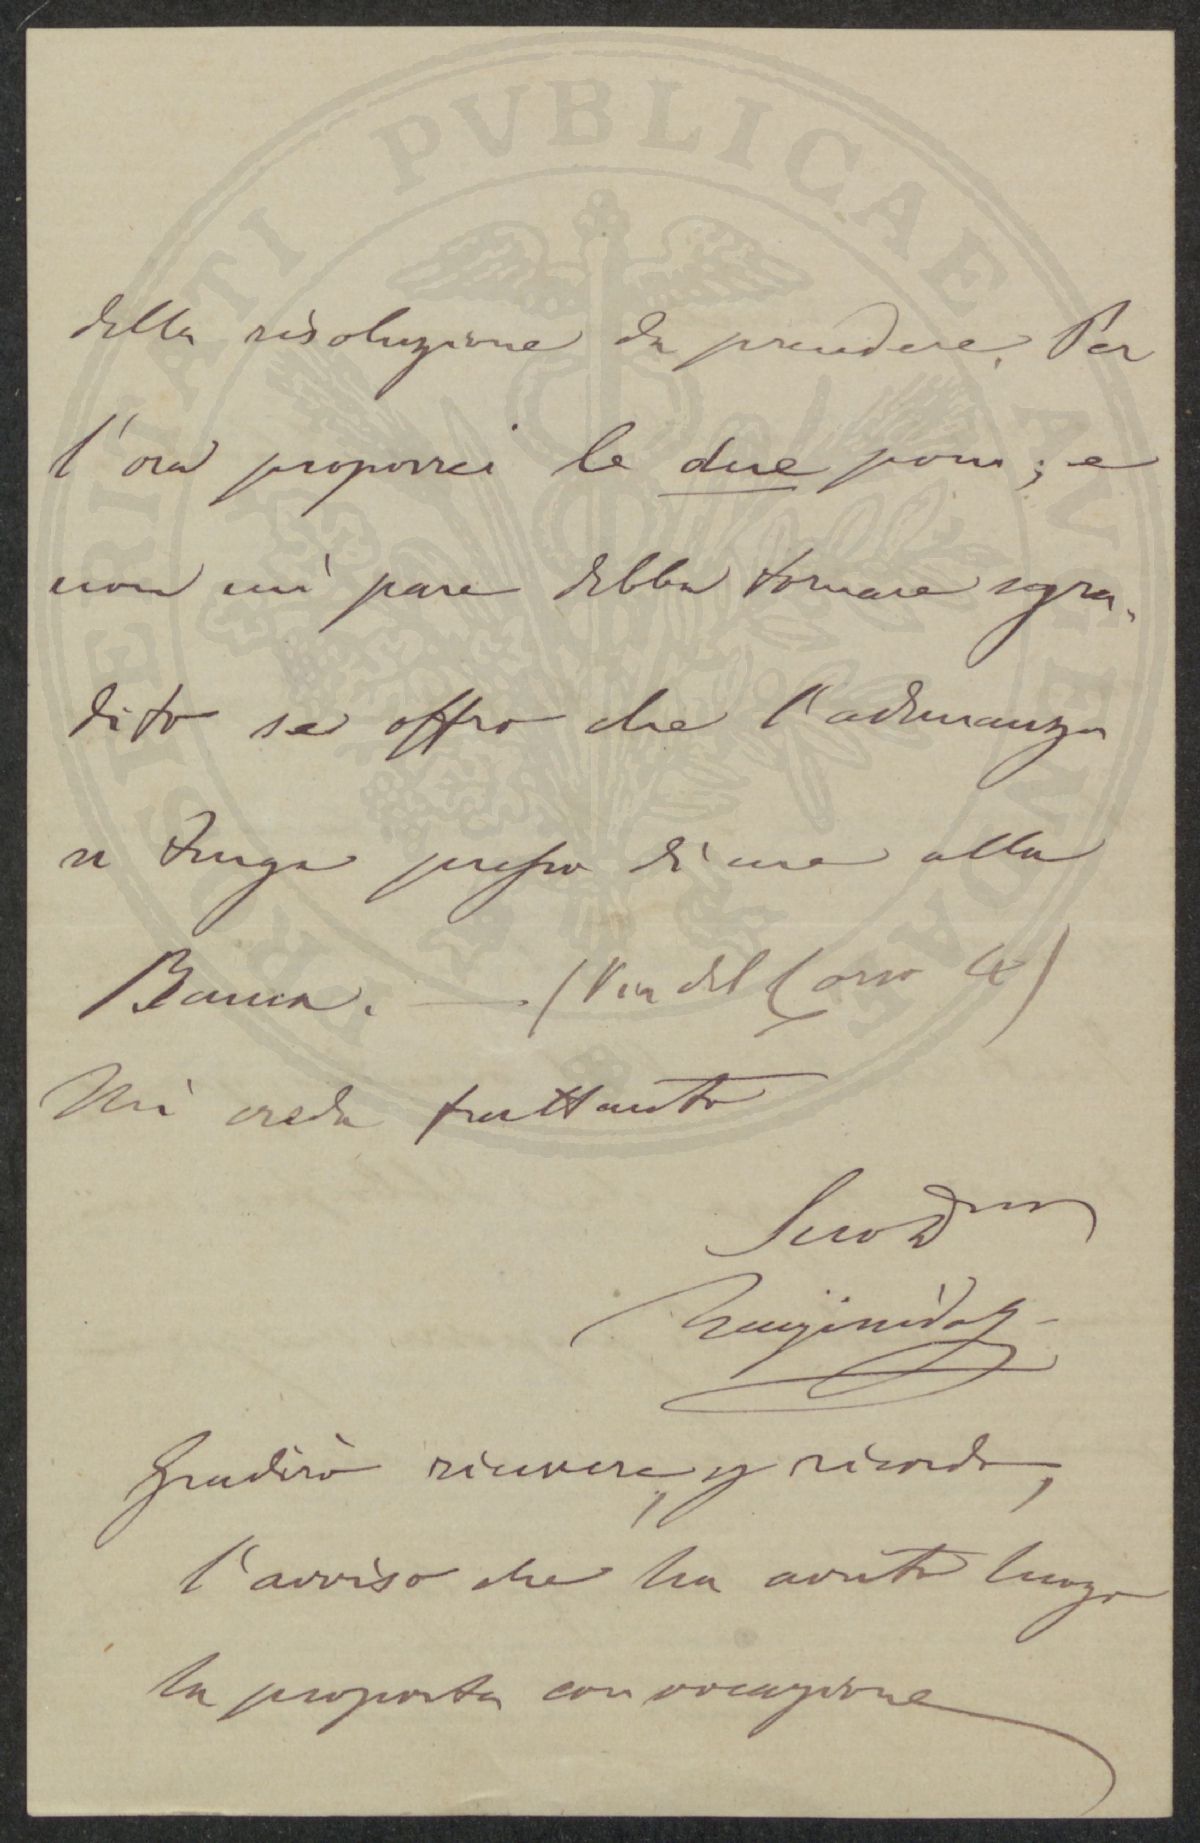 PVBLICAE
della risoluzione da prendere. Per
l'ora proporrei le due pom; e
non mi pare debba tornare sgra-
dito se offro che l'adunanza
si tenga presso di me alla
Banca. — (Via del Corso 4)
Mi creda frattanto
Suo
Gradirò ricevere, ricordo,
l'avviso che ha avuto luogo
la proposta convocazione